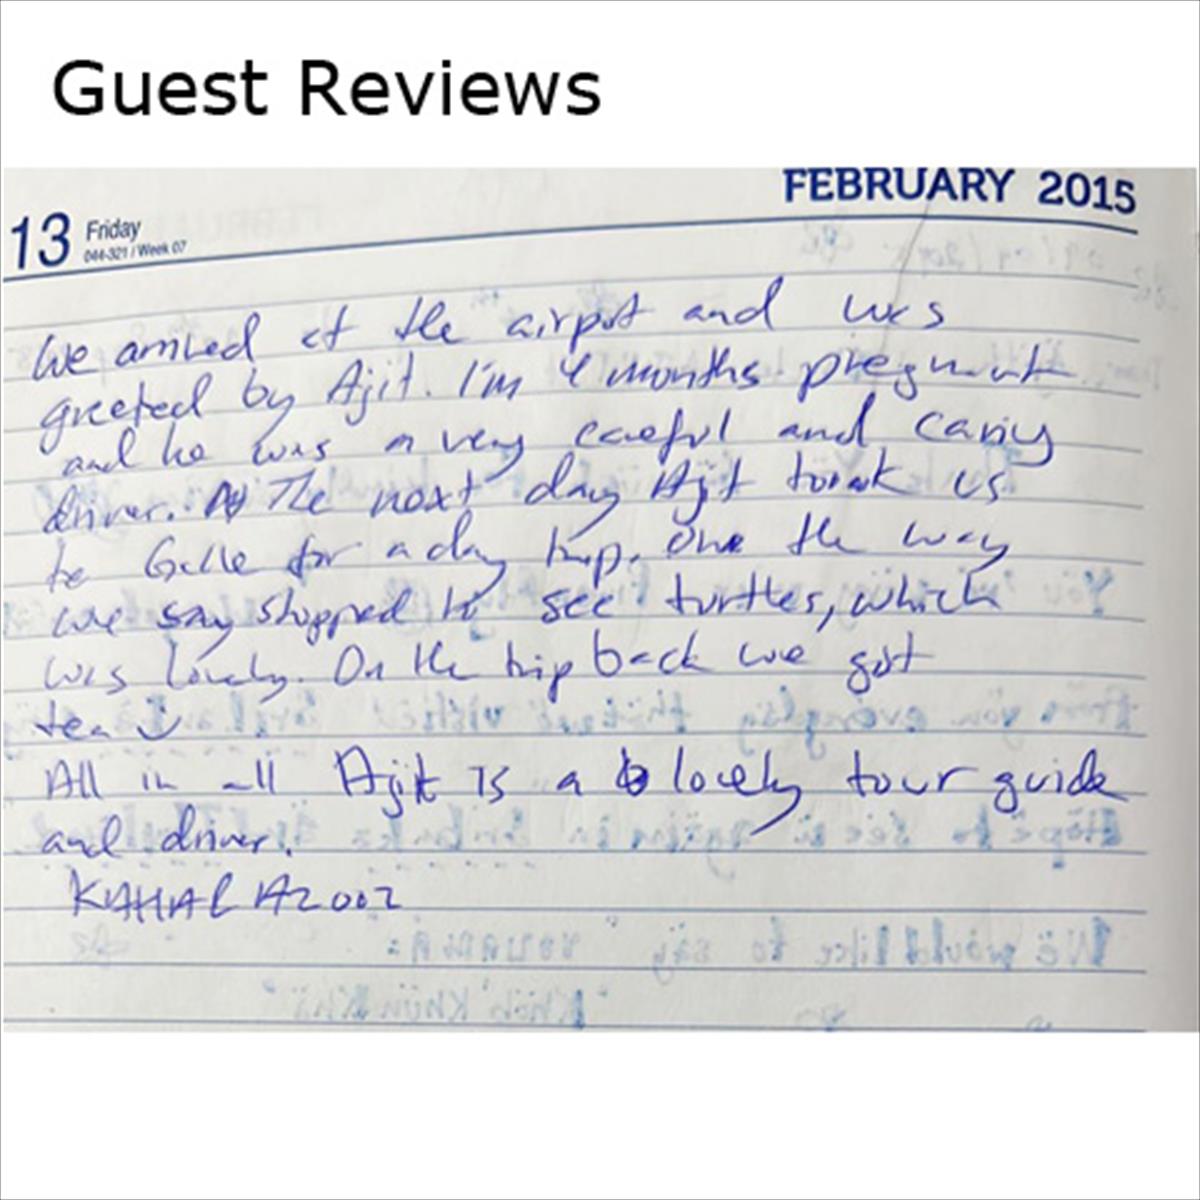 Guest Reviews
FEBRUARY 2015
13 Friday
044-321 / Week 07
We arrived at the airport and was
greeted by Ajit. I'm 4 months pregnant
and he was a very careful and caring
driver. The next day Ajit took us
to Galle for a day trip. One the way
we say stopped to see turtles, which
was lovely. On the trip back we got
tea
All in all Ajit is a lovely tour guide
and driver.
KAHAL AZOOZ